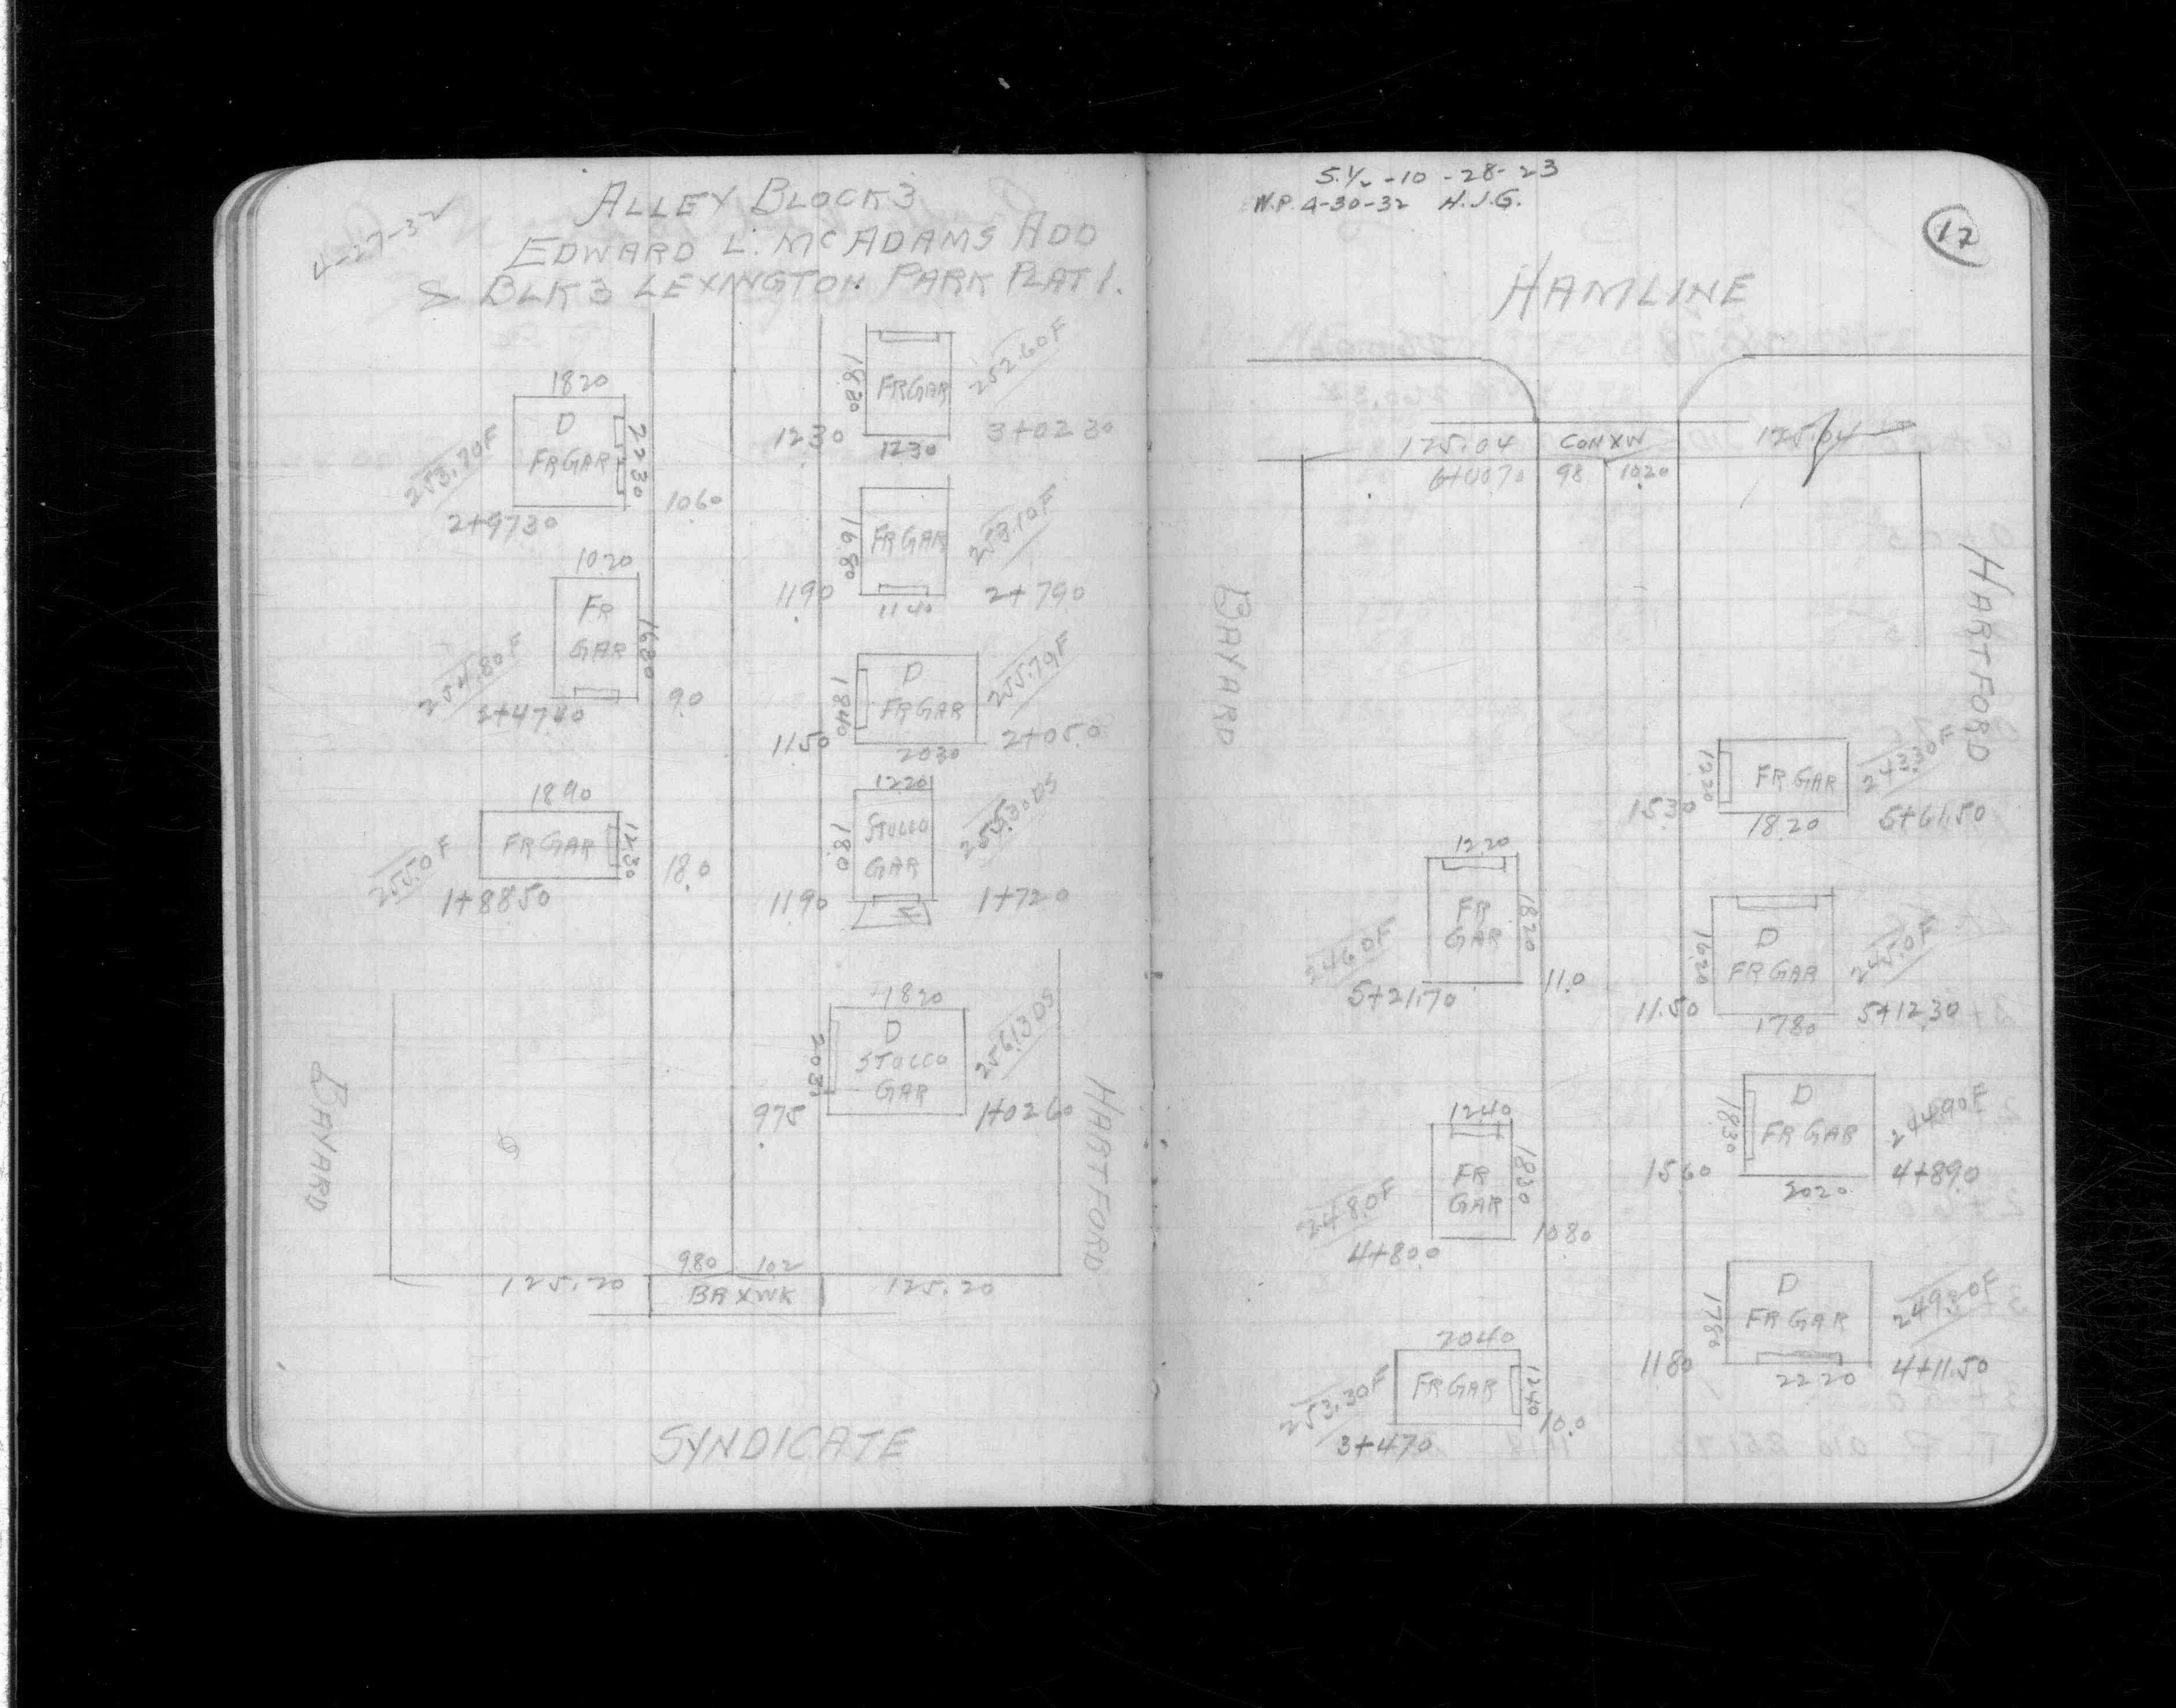 4-27-32
ALLEY BLOCK 3
EDWARD L. MCADAMS ADD
& BLK 3 LEXINGTON PARK PLAT 1.
1820
D
FR GAR
2230
253.70F
2+9730
1060
1880
FR GAR
252.60F
1230
1230
3+0230
1680
FR GAR
253.10F
1190
1140
2+790
1020
FR
GAR
1680
254.80F
2+4740
90
1840
D
FR GAR
255.70F
1150
2030
2+050
1890
FR GAR
1230
255.0F
1+8850
180
1220
STUCCO
GAR
180
255.30DS
1190
1+720
1820
D
STUCCO
GAR
256.13DS
975
1+0260
BAYARD
HARTFORD
980
102
125.20
BR XWK
125.20
SYNDICATE
S.1/2 -10 -28-23
W.P. 4-30-32 H.J.G.
12
HAMLINE
125.04
CON XW
125.04
6+0070
98
1020
BAYARD
HARTFORD
1220
FR GAR
243.30F
1530
1820
5+61.50
1220
FR
GAR
1820
246.0F
5+21.70
11.0
1620
D
FR GAR
245.0F
11.50
1780
5+12.30
1240
FR
GAR
1830
248.0F
4+800
1080
1830
D
FR GAR
244.90F
1560
2020
4+890
1780
D
FR GAR
1180
2220
4+11.50
2040
FR GAR
1240
253.30F
3+470
10.0